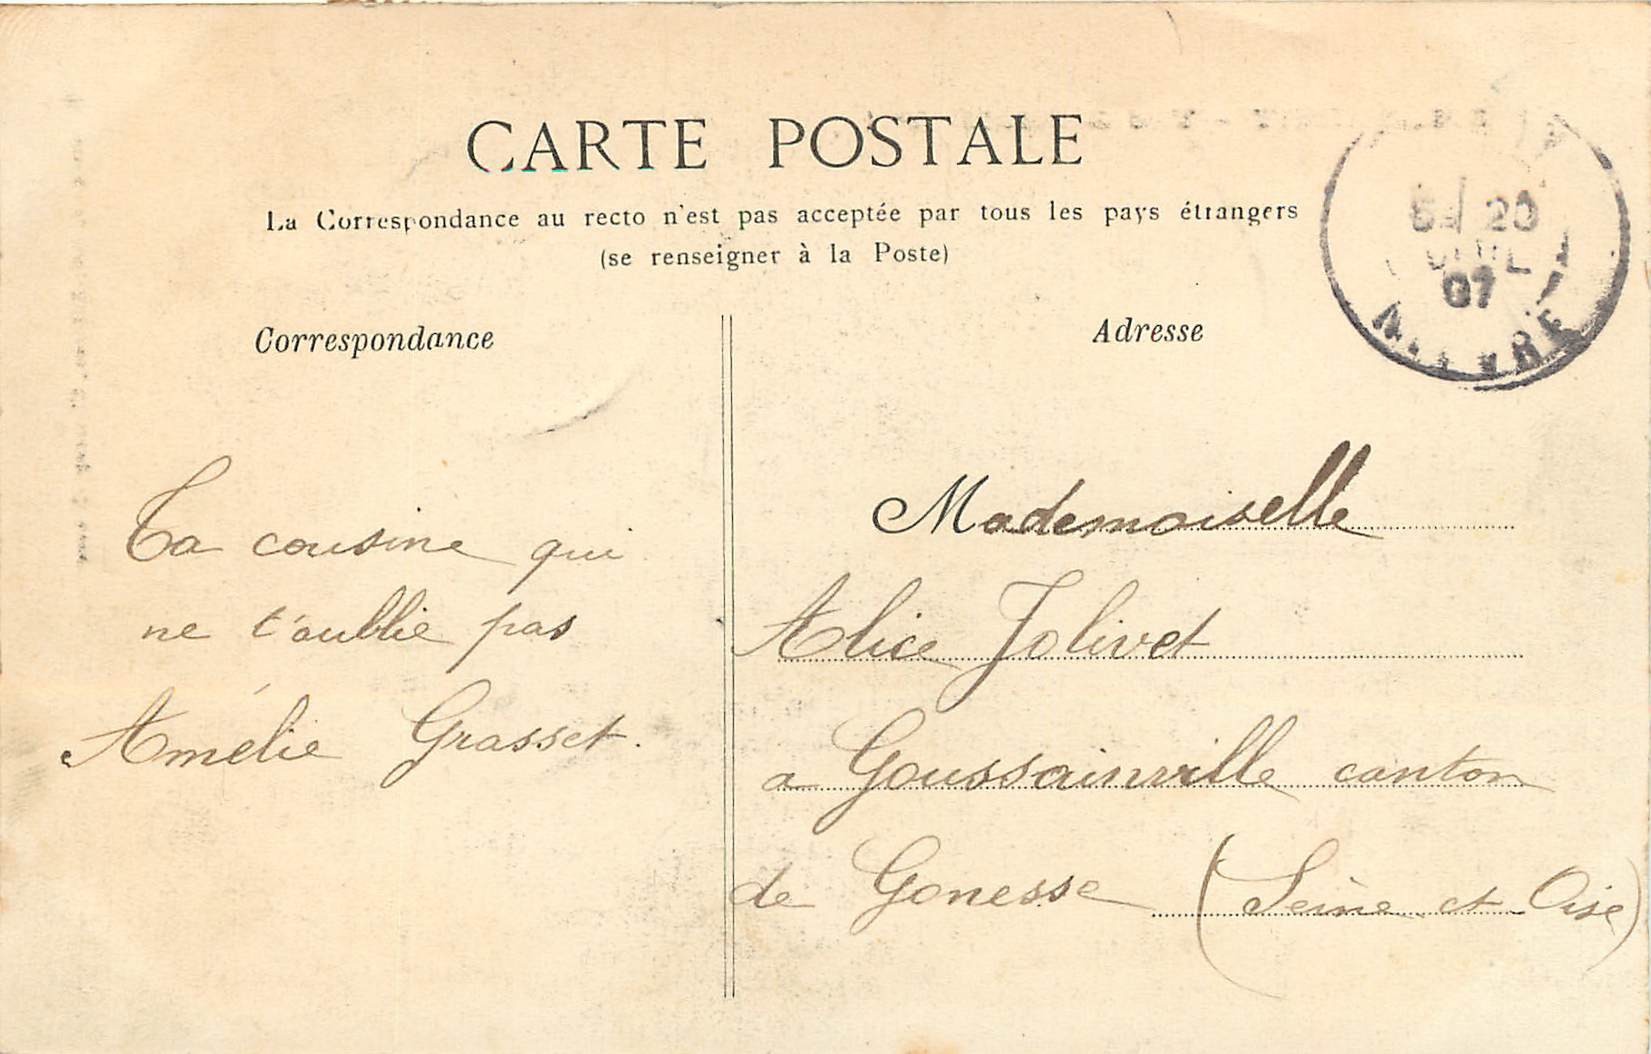 CARTE POSTALE
La Correspondance au recto n'est pas acceptée par tous les pays étrangers
(se renseigner à la Poste)
Correspondance
Adresse
20
07
NIÈVRE
Ta cousine qui
ne t'oublie pas
Amélie Grasset.
Mademoiselle
Alice Jolivet
a Goussainville canton
de Gonesse (Seine et Oise)